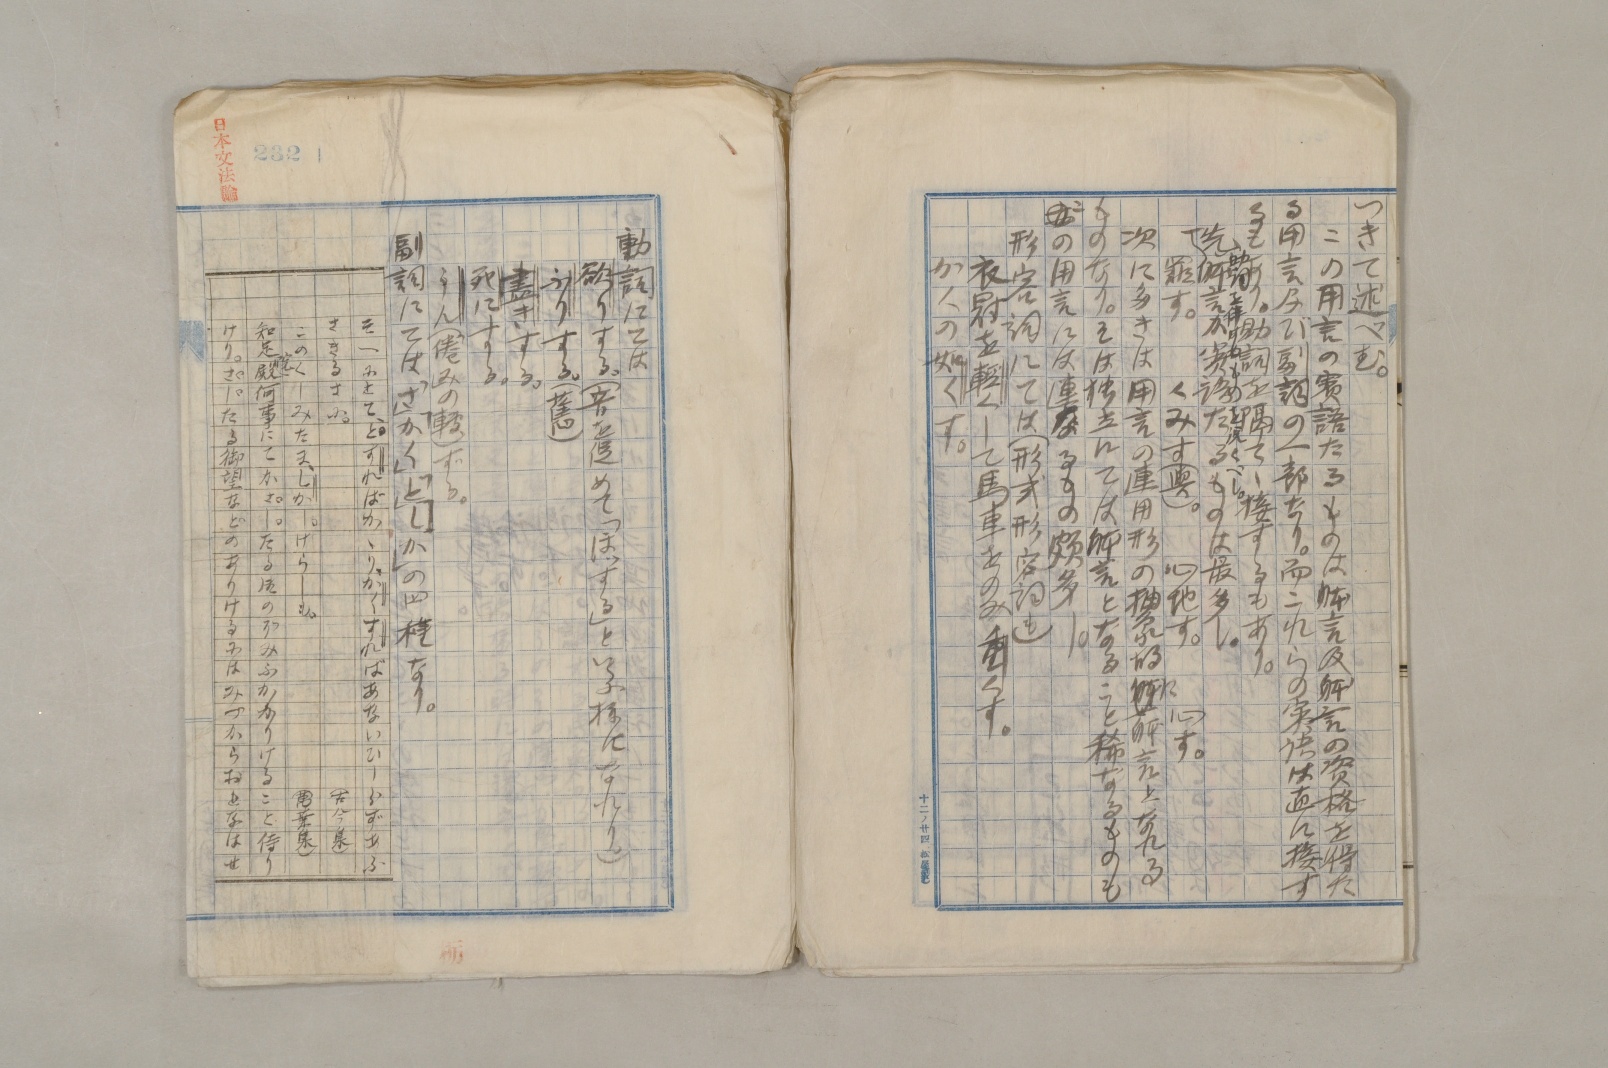 つきて述べむ。
この用言の賓語たるものは体言及体言の資格を得た
る用言及び副詞の一部なり。而これらの賓語は直に接す
るもあり。助詞を隔てゝ接するもあり。
先、体言が賓語たるものは最多し。
題す。 くみす(與)。 心地す。 心す。
次に多きは用言の連用形の抽象的に体言上なれる
ものなり。そは独立にては体言となること稀なるものも
この用言には連なるもの頗多し。
形容詞にては(形式形容詞も)
衣冠を軽くして馬車をのみ重くす。
かくの如くす。
十二ノ廿四
日本文法論
232
動詞にては
欲りする。(音を促めて「ほつする」といふ様になれり)
ふりする。(舊)
盡きする。
死にする。
うん(倦みの転)ずる。
副詞にては「さ」「かく」「と」「しか」の四種なり。
そへにとて、とすればかゝりかくすればあないひしらずあふ
さきるさに。 (古今集)
このくれみたまししか。けらしも。 (萬葉集)
知足院殿何事にてかさしたる御のぞみふかかりけること侍り
けり。さしたる御望などのありけるにはみづからおとなはせ